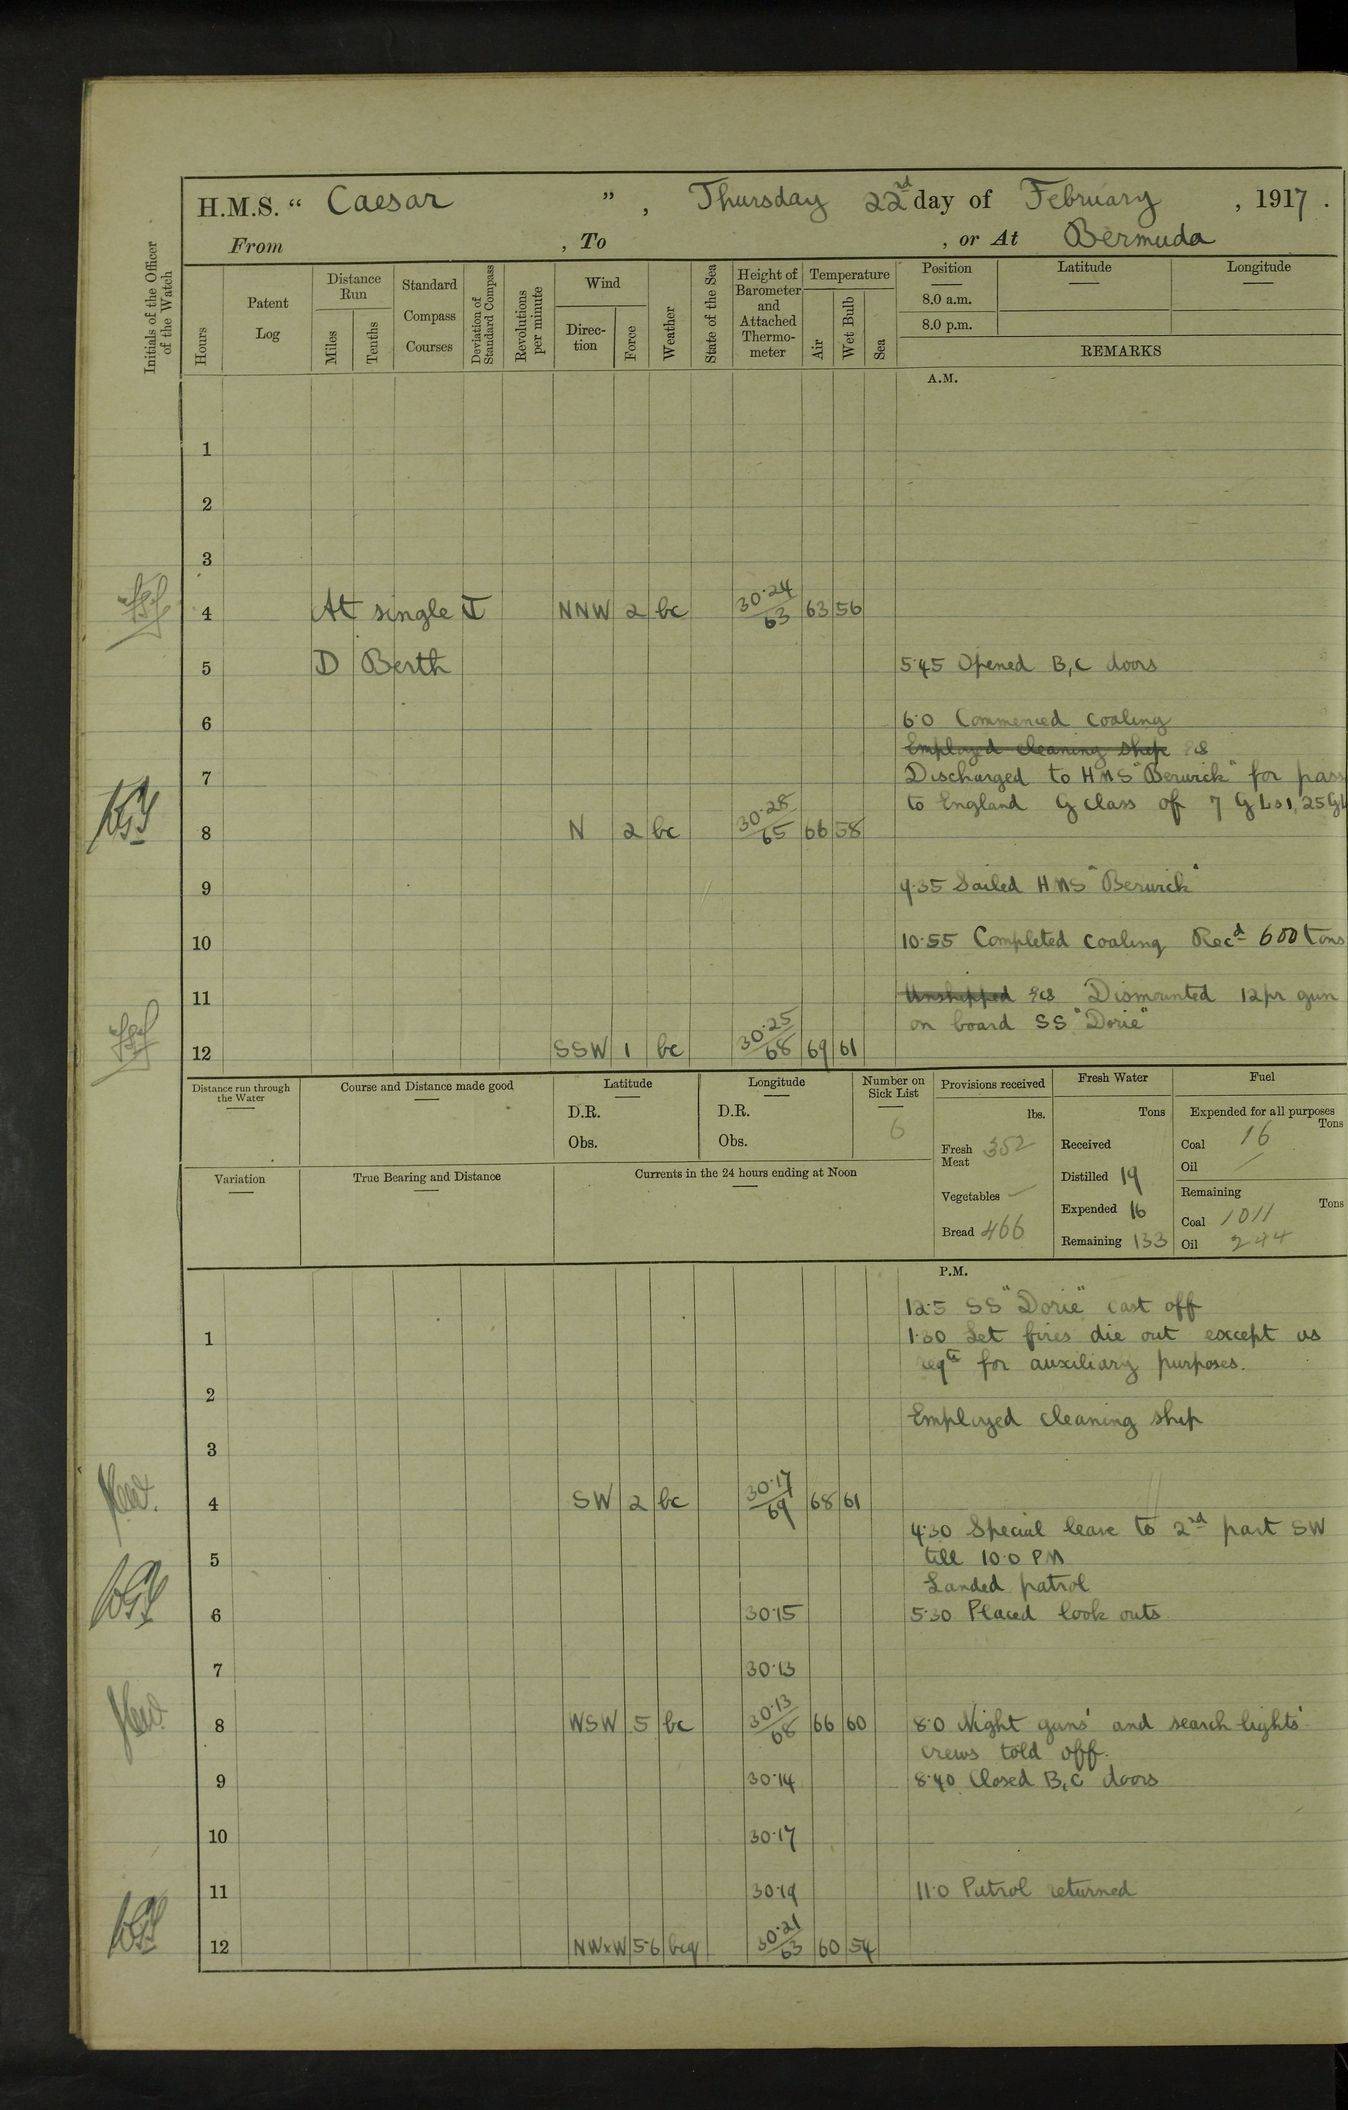 H.M.S. “ Caesar ” , Thursday 22nd day of February , 1917 .
From , To , or At Bermuda
Initials of the Officer of the Watch
Hours
Patent Log
Distance Run
Miles
Tenths
Standard Compass Courses
Deviation of Standard Compass
Revolutions per minute
Wind
Direc-tion
Force
Weather
State of the Sea
Height of Barometer and Attached Thermo-meter
Temperature
Air
Wet Bulb
Sea
Position Latitude Longitude
8.0 a.m.
8.0 p.m.
REMARKS
A.M.
1
2
3
4 At single NNW 2 bc 30.24/63 63 56
5 D Berth 5.45 Opened B, C doors
6 6.0 Commenced coaling
Employed cleaning ship
7 Discharged to HMS "Berwick" for pass
to England G class of 7 GLs 1, 25 GL
8 N 2 bc 30.28/65 66 58
9 9.35 Sailed HMS "Berwick"
10 10.55 Completed coaling Recd 600 tons
11 Unshipped Dismounted 12pr gun
on board SS "Dorie"
12 SSW 1 bc 30.25/68 69 61
Distance run through the Water
Course and Distance made good
Latitude
D.R.
Obs.
Longitude
D.R.
Obs.
Number on Sick List
6
Provisions received
lbs.
Fresh Meat 352
Vegetables —
Bread 466
Fresh Water
Tons
Received
Distilled 19
Expended 16
Remaining 133
Fuel
Expended for all purposes
Tons
Coal 16
Oil —
Remaining
Tons
Coal 1011
Oil 244
Variation
True Bearing and Distance
Currents in the 24 hours ending at Noon
P.M.
12.5 SS "Dorie" cast off
1 1.30 Let fires die out except as
reqd for auxiliary purposes.
2
Employed cleaning ship
3
4 SW 2 bc 30.17/69 68 61
4.30 Special leave to 2nd part SW
5 till 10.0 PM
Landed patrol
6 30.15 5.30 Placed look outs
7 30.13
8 WSW 5 bc 30.13/68 66 60 8.0 Night guns' and search lights'
crews told off.
9 30.14 8.40 Closed B, C doors
10 30.17
11 30.19 11.0 Patrol returned
12 NWxW 5-6 bcq 30.21/63 60 54